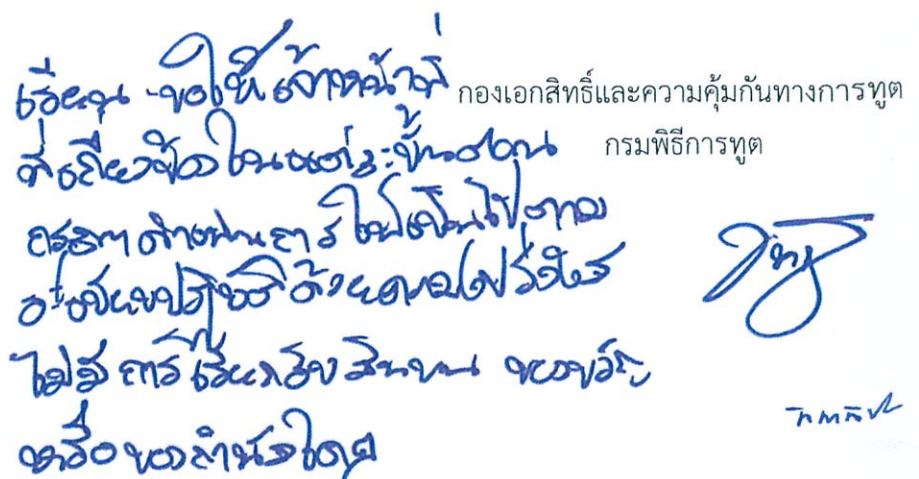 เรียน ขอให้เจ้าหน้าที่
ที่เกี่ยวข้องในแต่ละขั้นตอน
กรุณาดำเนินการให้เป็นไปตาม
ระเบียบปฏิบัติด้วยความโปร่งใส
ไม่มีการเรียกรับสินบน ของขวัญ
หรือของกำนัลใดๆ
กองเอกสิทธิ์และความคุ้มกันทางการทูต
กรมพิธีการทูต